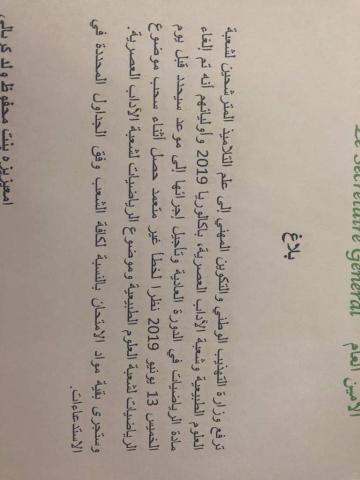 Le Secrétaire Général الأمين العام
بلاغ
ترفع وزارة التهذيب الوطني والتكوين المهني إلى علم التلاميذ المترشحين لشعبة
العلوم الطبيعية وشعبة الآداب العصرية، باكالوريا 2019 وأوليائهم أنه تم إلغاء
مادة الرياضيات في الدورة العادية وتأجيل إجرائها إلى موعد سيحدد قبل يوم
الخميس 13 يونيو 2019 نظرا لخطأ غير متعمد حصل أثناء سحب موضوع
الرياضيات لشعبة العلوم الطبيعية وموضوع الرياضيات لشعبة الآداب العصرية.
وستجرى بقية مواد الامتحان بالنسبة لكافة الشعب وفق الجداول المحددة في
الاستدعاءات.
امعيزيزه بنت محفوظ ولد كربالي